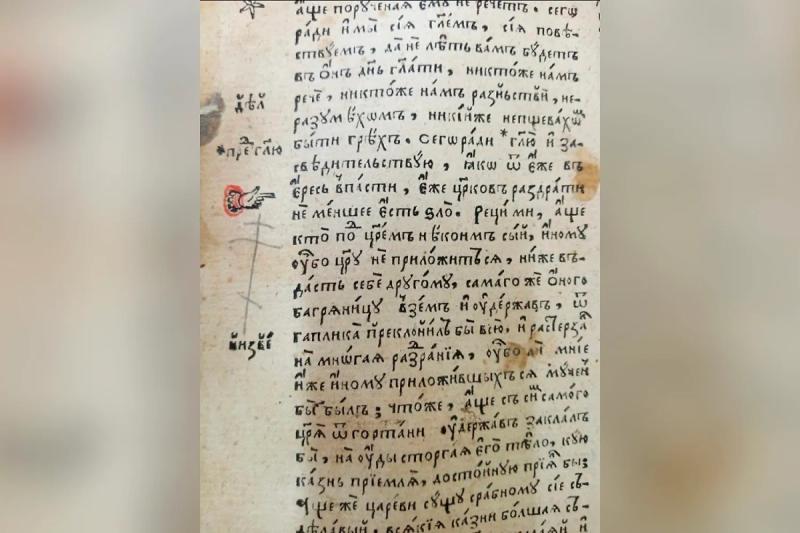 а҆́ще порꙋ́ченаѧ є҆мꙋ̀ не рече́тъ. сегѡ̀
ра́ди и҆ мы̀ сїѧ̑ гл҃емъ, сїѧ̑ повѣ́-
ствꙋемъ, да̀ не лѣ́ть ва́мъ бꙋ́детъ
въ ѻ҆́нъ дн҃ь гл҃ати, никто́же на́мъ
дѣѧ̑
речѐ, никто́же на́мъ разⸯѧстѝ, не-
разꙋмѣ́хомъ, никі́йже непщева́хѡⷨ
бы́ти грѣ́хъ. Сегѡ̀ ра́ди *гл҃ю и҆ за-
*преⷣ гл҃ю
свѣди́тельствꙋю, ꙗ҆́кѡ ѿ є҆́же въ
є҆́ресь впа́сти, є҆́же цр҃ковь раздра́ти
не ме́ншее є҆́сть ѕло̀. Рецы́ ми, а҆́ще
кто̀ поⷣ цр҃е́мъ нѣ́коимъ сы́й, и҆́номꙋ
ᲂу҆́бо цр҃ꙋ не приложи́тъсѧ, ни́же въ-
да́сть себѐ дрꙋго́мꙋ, сама́го же ѻ҆́ного
багрѧни́цꙋ взе́мъ и҆ ᲂу҆держа́въ, ѿ
и҆зⸯвѣ́
гаплика̀ преклони́лъ бы̀ всю̀, и҆ растерза́лъ
на мнѡ́гаѧ раздра̑нїѧ, ᲂу҆́бо ли̑ мні́е
и҆̀же и҆́номꙋ приложи́вшыхъсѧ мꙋ́ченъ
бы̀ бы́лъ; что́же, а҆́ще съ си́мъ само́го
цр҃ѧ̀ ѿ горта́ни ᲂу҆держа́въ закла́лъ
бы̀, на ᲂу҆́ды сторга́ѧ є҆гѡ̀ тѣ́ло, кꙋ́ю
ка́знь прїе́млѧ, досто́йнꙋю прїѧ́лъ бы;
А҆́ще же царе́ви сꙋ́щꙋ сра́бномꙋ сїѐ съ-
дѣ́лавый, всѧ́кїѧ ка́зни бо́лшаѧ съ-